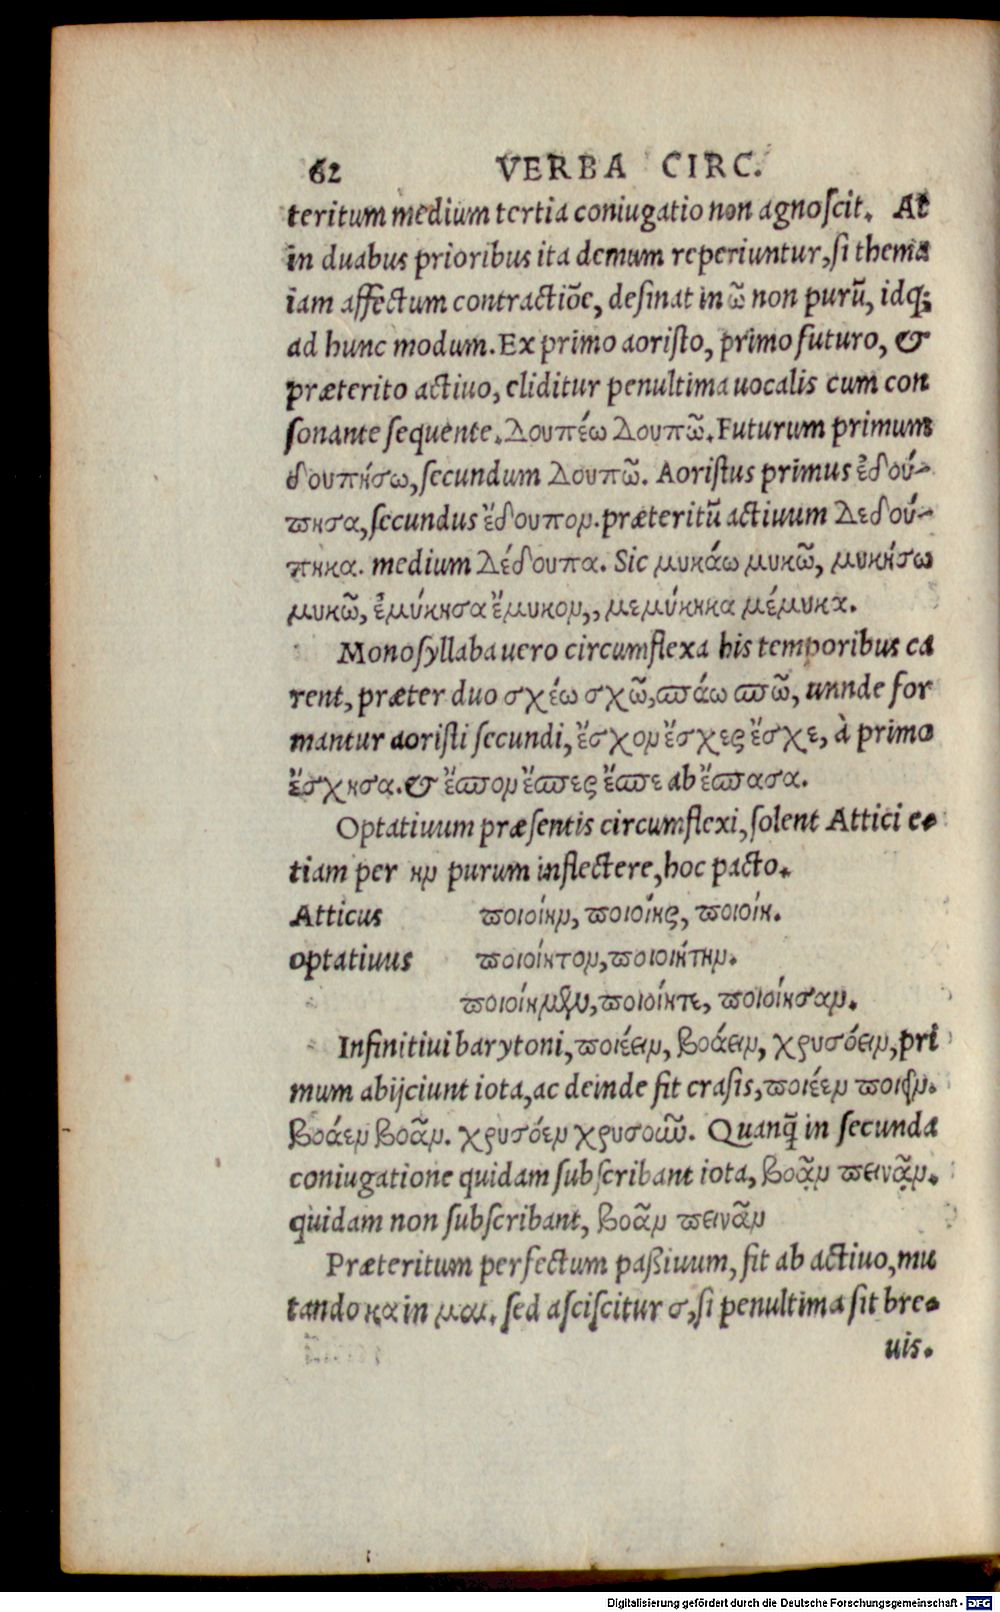 62 VERBA CIRC.
teritum medium tertia coniugatio non agnoſcit. At
in duabus prioribus ita demum reperiuntur, ſi thema
iam affectum contractiõe, deſinat in ῶ non purũ, idq;
ad hunc modum. Ex primo aoriſto, primo futuro, &
præterito actiuo, eliditur penultima uocalis cum con
ſonante ſequente. Δουπέω Δουπῶ. Futurum primum
δουπήσω, ſecundum Δουπῶ. Aoriſtus primus ἐδού-
πησα, ſecundus ἔδουπον. præteritũ actiuum Δεδού-
πηκα. medium Δέδουπα. Sic μυκάω μυκῶ, μυκήσω
μυκῶ, ἐμύκησα ἔμυκον,, μεμύκηκα μέμυκα.
Monoſyllaba uero circumflexa his temporibus ca
rent, præter duo σχέω σχῶ, πάω πῶ, unnde for
mantur aoriſti ſecundi, ἔσχον ἔσχες ἔσχε, à primo
ἔσχησα. & ἔπον ἔπες ἔπε ab ἔπασα.
Optatiuum præſentis circumflexi, ſolent Attici e-
tiam per ην purum inflectere, hoc pacto.
Atticus ποιοίην, ποιοίης, ποιοίη.
optatiuus ποιοίητον, ποιοιήτην.
ποιοίημεν, ποιοίητε, ποιοίησαν.
Infinitiui barytoni, ποιέειν, βοάειν, χρυσόειν, pri
mum abijciunt iota, ac deinde fit craſis, ποιέεν ποιεῖν.
βοάεν βοᾶν. χρυσόεν χρυσοῦν. Quanq̃ in ſecunda
coniugatione quidam ſubſcribant iota, βοᾷν πεινᾷν.
quidam non ſubſcribant, βοᾶν πεινᾶν
Præteritum perfectum paßiuum, fit ab actiuo, mu
tando κα in μαι. ſed aſciſcitur σ, ſi penultima ſit bre-
uis.
Digitalisierung gefördert durch die Deutsche Forschungsgemeinschaft - DFG